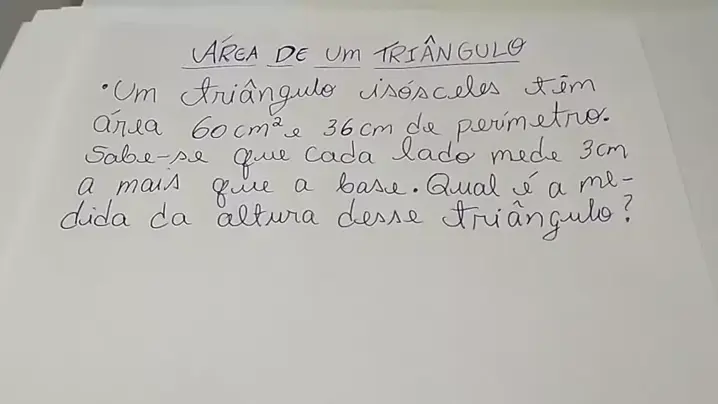 ÁREA DE UM TRIÂNGULO
• Um triângulo isósceles têm
área 60 cm² e 36 cm de perímetro.
Sabe-se que cada lado mede 3cm
a mais que a base. Qual é a me-
dida da altura desse triângulo?